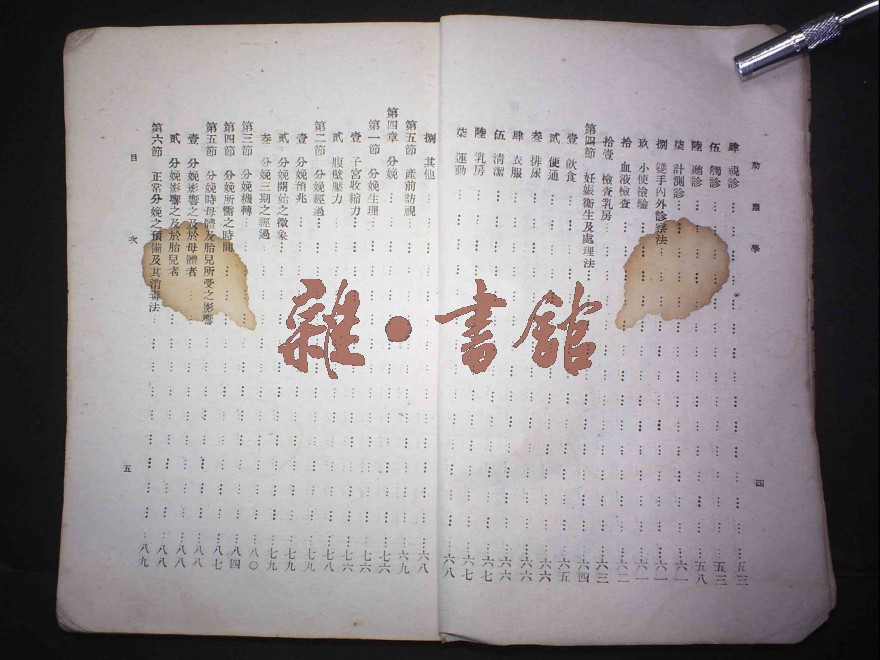 助產學
肆　視診…五三
伍　觸診…五三
陸　聽診…五八
柒　計測診…六一
捌　雙手內外診察法…六一
玖　小便檢驗…六一
拾　血液檢查…六二
拾壹　檢查乳房…六三
第四節　妊娠衞生及處理法…六四
壹　飲食…六五
貳　便通…六六
叁　排尿…六六
肆　衣服…六六
伍　清潔…六六
陸　乳房…六七
柒　運動…六八
四
捌　其他…六八
第五節　產前訪視…六九
第四章　分娩…七六
第一節　分娩生理…七六
壹　子宮收縮力…七六
貳　腹壁壓力…七九
第二節　分娩經過…七八
壹　分娩預兆…七九
貳　分娩開始之徵象…七九
叁　分娩三期之經過…七九
第三節　分娩機轉…八〇
第四節　分娩所需之時間…八四
第五節　分娩時母體及胎兒所受之影響…八七
壹　分娩影響之及於母體者…八八
貳　分娩影響之及於胎兒者…八八
第六節　正常分娩之預備及其消毒法…八九
目次
五
雜·書館